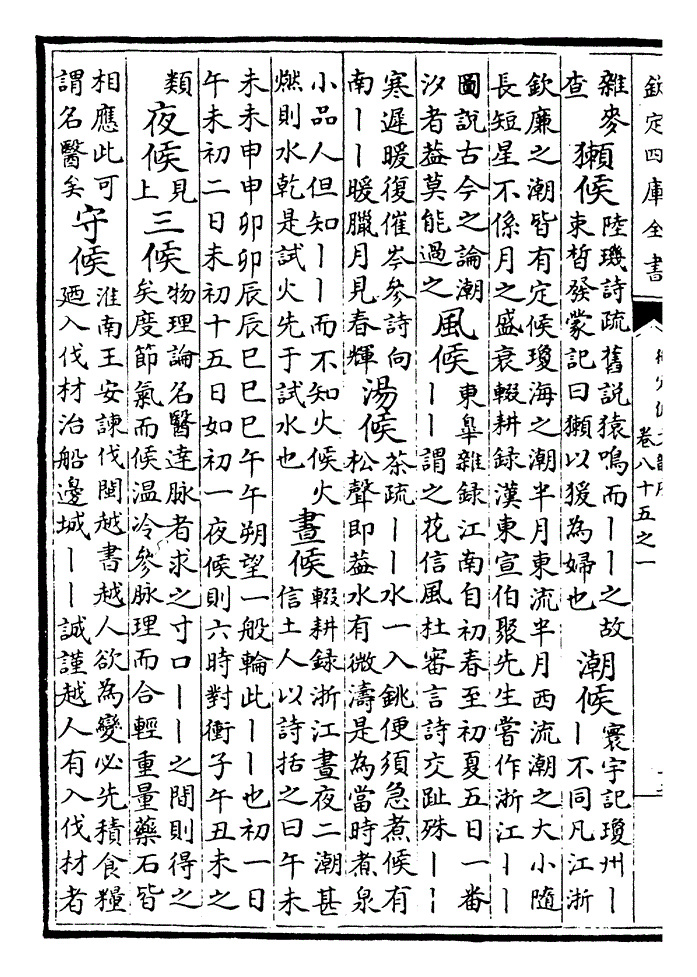 欽定四庫全書
卷八十五之一
雜麥
查
獺候
陸璣詩疏舊説猿鳴而丨丨之故
束晳發蒙記曰獺以猨為婦也
潮候
寰宇記瓊州丨
丨不同凡江浙
欽廉之潮皆有定候瓊海之潮半月東流半月西流潮之大小隨
長短星不係月之盛衰輟耕録漢東宣伯聚先生嘗作浙江丨丨
圖説古今之論潮
汐者葢莫能過之
風候
東臯雜録江南自初春至初夏五日一番
丨丨謂之花信風杜審言詩交趾殊丨丨
寒遲暖復催岑參詩向
南丨丨暖臘月見春輝
湯候
茶疏丨丨水一入銚便須急煮候有
松聲即葢水有微濤是為當時煮泉
小品人但知丨丨而不知火候火
燃則水乾是試火先于試水也
晝候
輟耕録浙江晝夜二潮甚
信土人以詩括之曰午未
未未申申卯卯辰辰巳巳巳午午朔望一般輪此丨丨也初一日
午未初二日未初十五日如初一夜候則六時對衝子午丑未之
類
夜候
見
上
三候
物理論名醫達脉者求之寸口丨丨之間則得之
矣度節氣而候温冷參脉理而合輕重量藥石皆
相應此可
謂名醫矣
守候
淮南王安諫伐閩越書越人欲為變必先積食糧
廼入伐材治船邊城丨丨誠謹越人有入伐材者